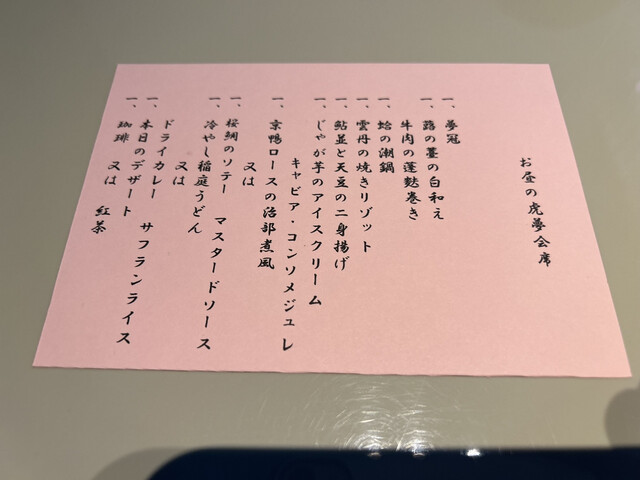 お昼の虎夢会席
一、夢冠
一、蕗の薹の白和え
牛肉の蓬麩巻き
一、蛤の潮鍋
一、雲丹の焼きリゾット
一、鮎並と天豆の二身揚げ
一、じゃが芋のアイスクリーム
キャビア・コンソメジュレ
一、京鴨ロースの治部煮風
又は
一、桜鯛のソテー マスタードソース
一、冷やし稲庭うどん
又は
ドライカレー サフランライス
一、本日のデザート
一、珈琲 又は 紅茶